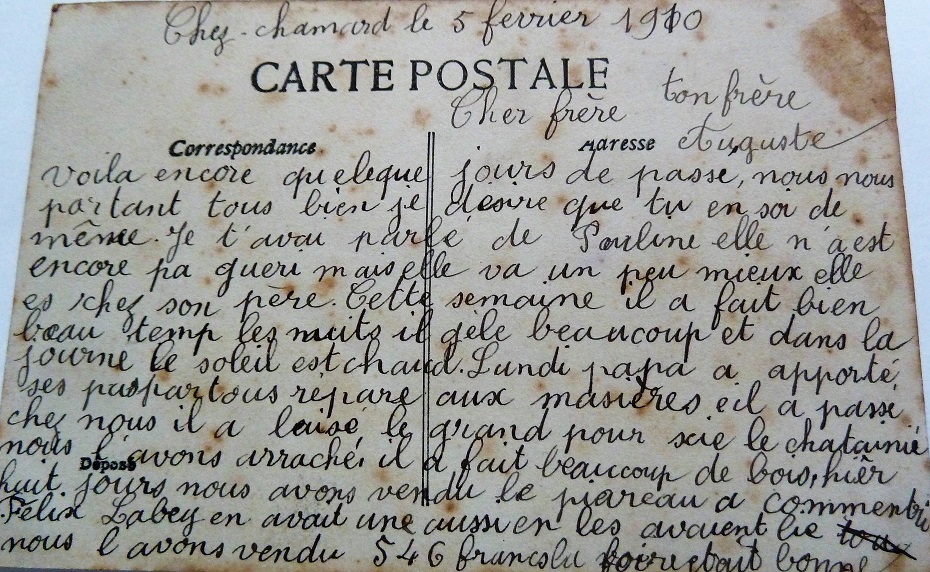 Chez-chamard le 5 fevrier 1910
CARTE POSTALE
Cher frère ton frère
Correspondance Adresse Auguste
Voila encore queleque jours de passe, nous nous
portant tous bien je desire que tu en soi de
même. Je t'avai parlé de Pauline elle n'a est
encore pa gueri mais elle va un peu mieux elle
es chez son père. Cette semaine il a fait bien
beau temp les nuits il gèle beaucoup et dans la
journe le soleil est chaud. Lundi papa a apporté
ses paspartous répare aux masières eil a passé
chez nous il a laisé le grand pour scie le chatainié
nous l'avons arraché il a fait beaucoup de bois, hièr
Déposé
huit jours nous avons vendu le piareau a commentri
Felix Labey en avait une aussi en les avaient lie
nous l'avons vendu 546 francs la foire etait bonne